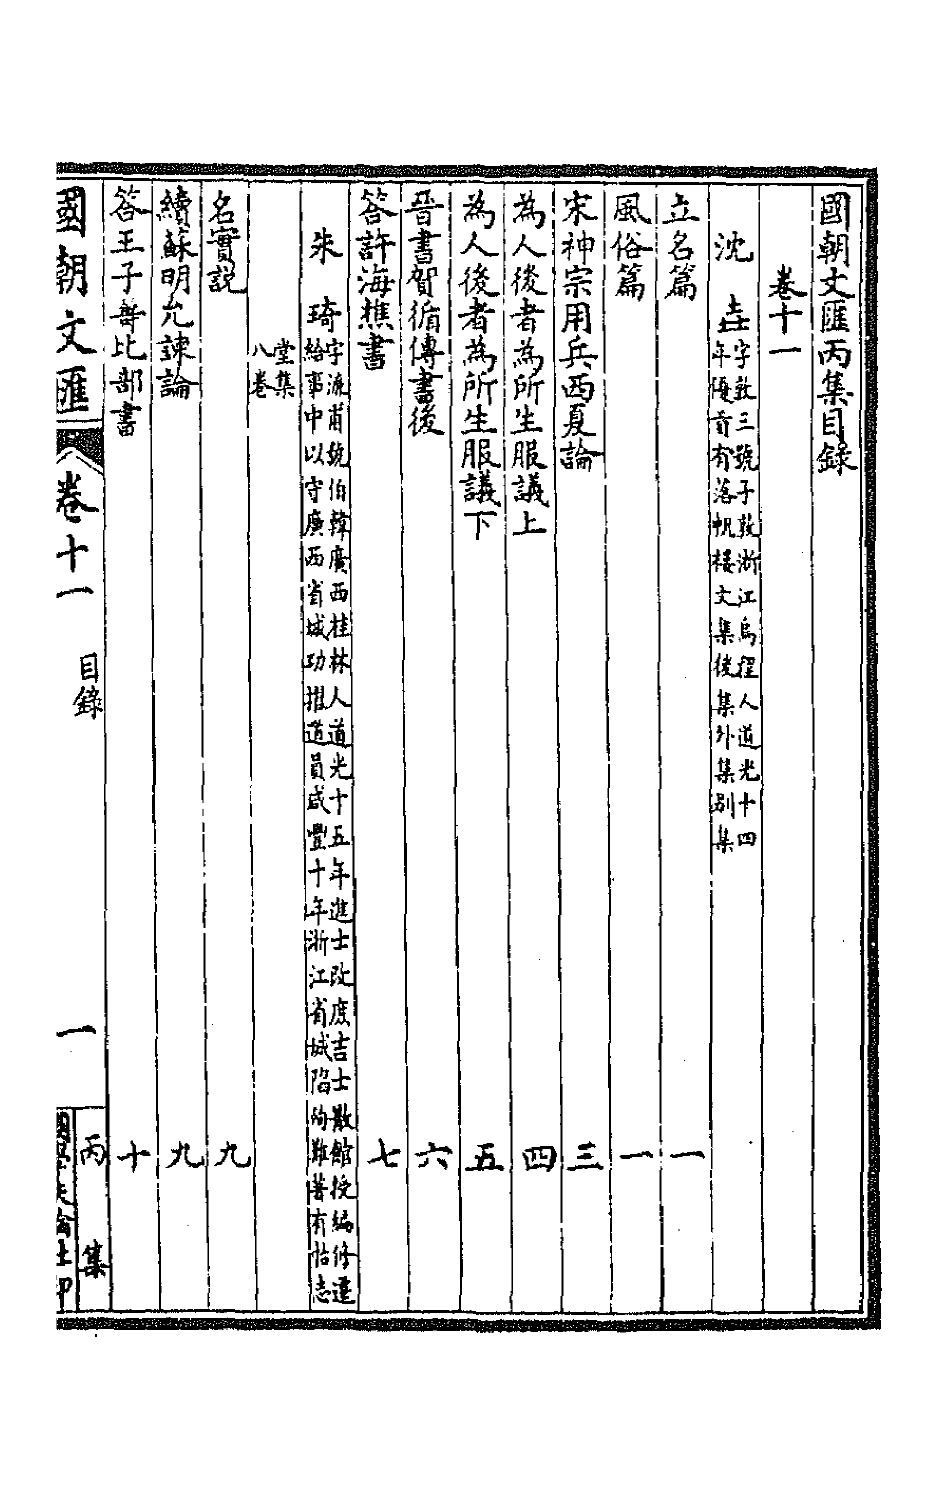 國朝文匯丙集目錄
卷十一
沈垚字敦三號子敦浙江烏程人道光十四
年優貢有落帆樓文集後集外集別集
立名篇 一
風俗篇 一
宋神宗用兵西夏論 三
為人後者為所生服議上 四
為人後者為所生服議下 五
晉書賀循傳書後 六
答許海樵書 七
朱琦字濂甫號伯韓廣西桂林人道光十五年進士改庶吉士散館授編修遷
給事中以守廣西省城功擢道員咸豐十年浙江省城陷殉難著有怡志
堂集
八卷
名實說 九
續蘇明允諫論 九
答王子壽比部書 十
國朝文匯 卷十一 目錄 一 丙集
國學扶輪社印